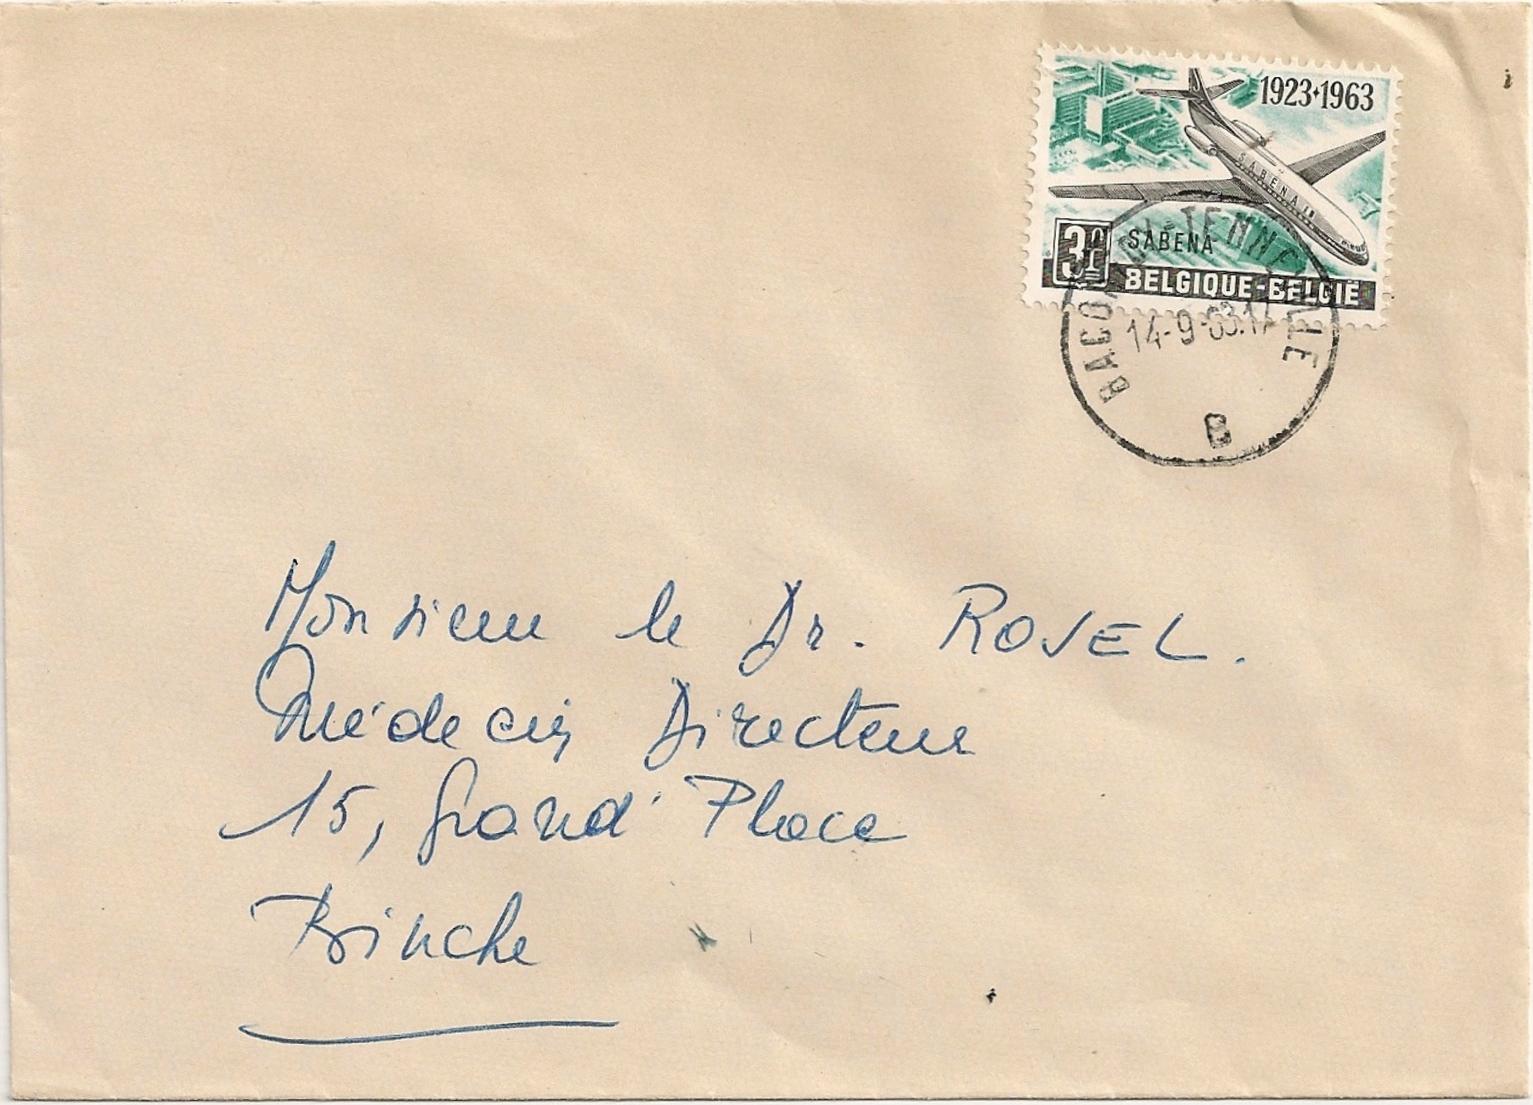 1923•1963
SABENA
3F SABENA
BELGIQUE-BELGIË
14-9-63.17
B
Monsieur le Dr. ROSEL.
Médecin Directeur
15, Grand'Place
Binche